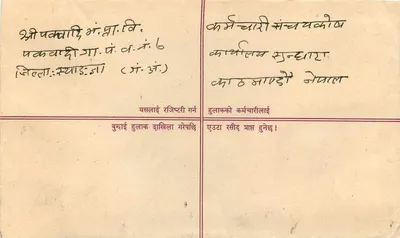 श्री पक्वादि भं. प्रा. वि.
पकवादी गा. पं. व. नं. ७
जिल्ला: स्याङजा (गं. अं.)
कर्मचारी संचयकोष
कार्यालय सुन्धारा
काठमाण्डौ नेपाल
यसलाई रजिष्टरी गर्न हुलाकको कर्मचारीलाई
बुझाई हुलाक दाखिला गरेपछि एउटा रसीद प्राप्त हुनेछ।